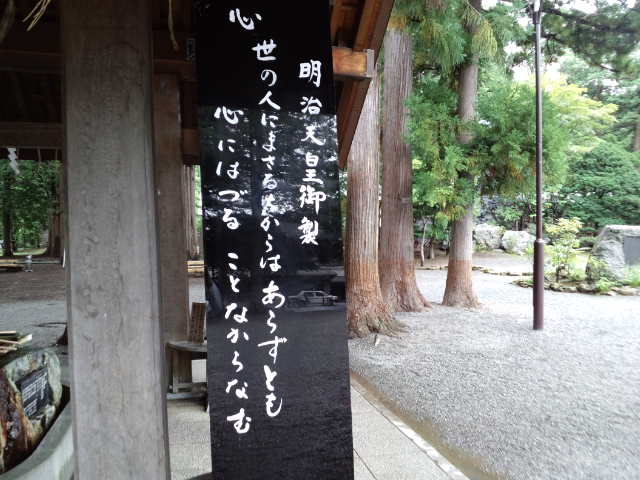 心
明治天皇御製
世の人にまさる力はあらずとも
心にはづることなからなむ